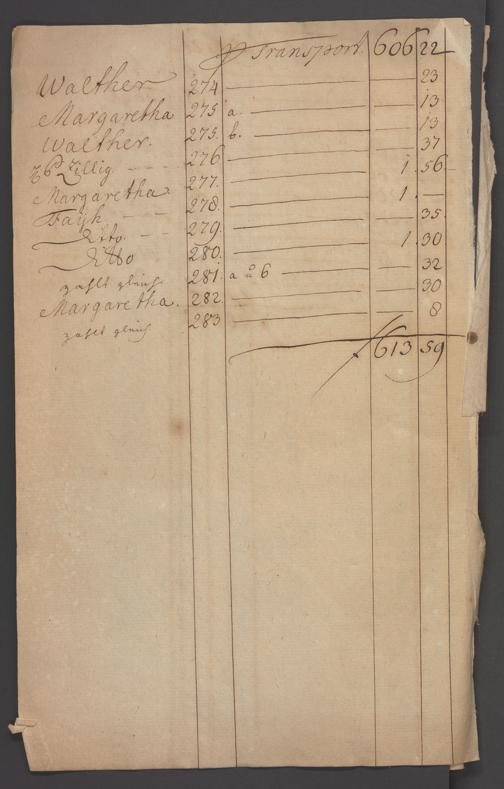 Transport 606 22
Walther 274 23
Margaretha 275 a. 13
Walther. 275. b. 13
Zillig 276 37
Margaretha 277. 1. 56
Fayh 278. 1.
dito. 279. 35.
ditto 280. 1. 30
zahlt gleich 281. a u b 32
Margaretha. 282. 30
zahlt gleich 283 8
613 59